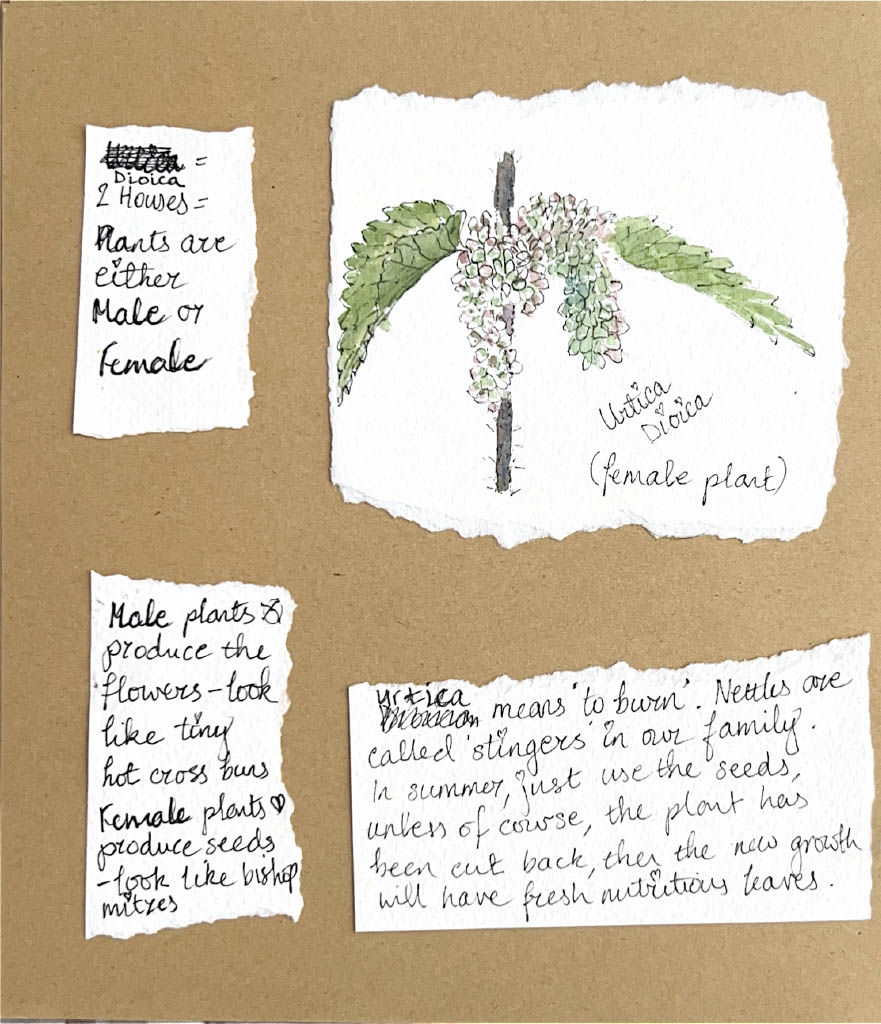 =
Dioica
2 Houses =
Plants are
either
Male or
Female
Urtica
Dioica
(female plant)
Male plants
produce the
flowers - look
like tiny
hot cross buns
Female plants ♡
produce seeds
- look like bishop
mitres
Urtica
means 'to burn'. Nettles are
called 'stingers' in our family.
In summer, just use the seeds,
unless of course, the plant has
been cut back, then the new growth
will have fresh nutritious leaves.